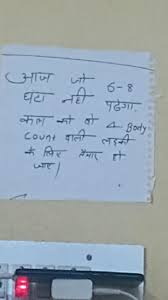 आज जो 6-8
घंटा नही पढेगा
कल को वो 4 Body
count वाली लड़की
के लिए तैयार हो
जाए।